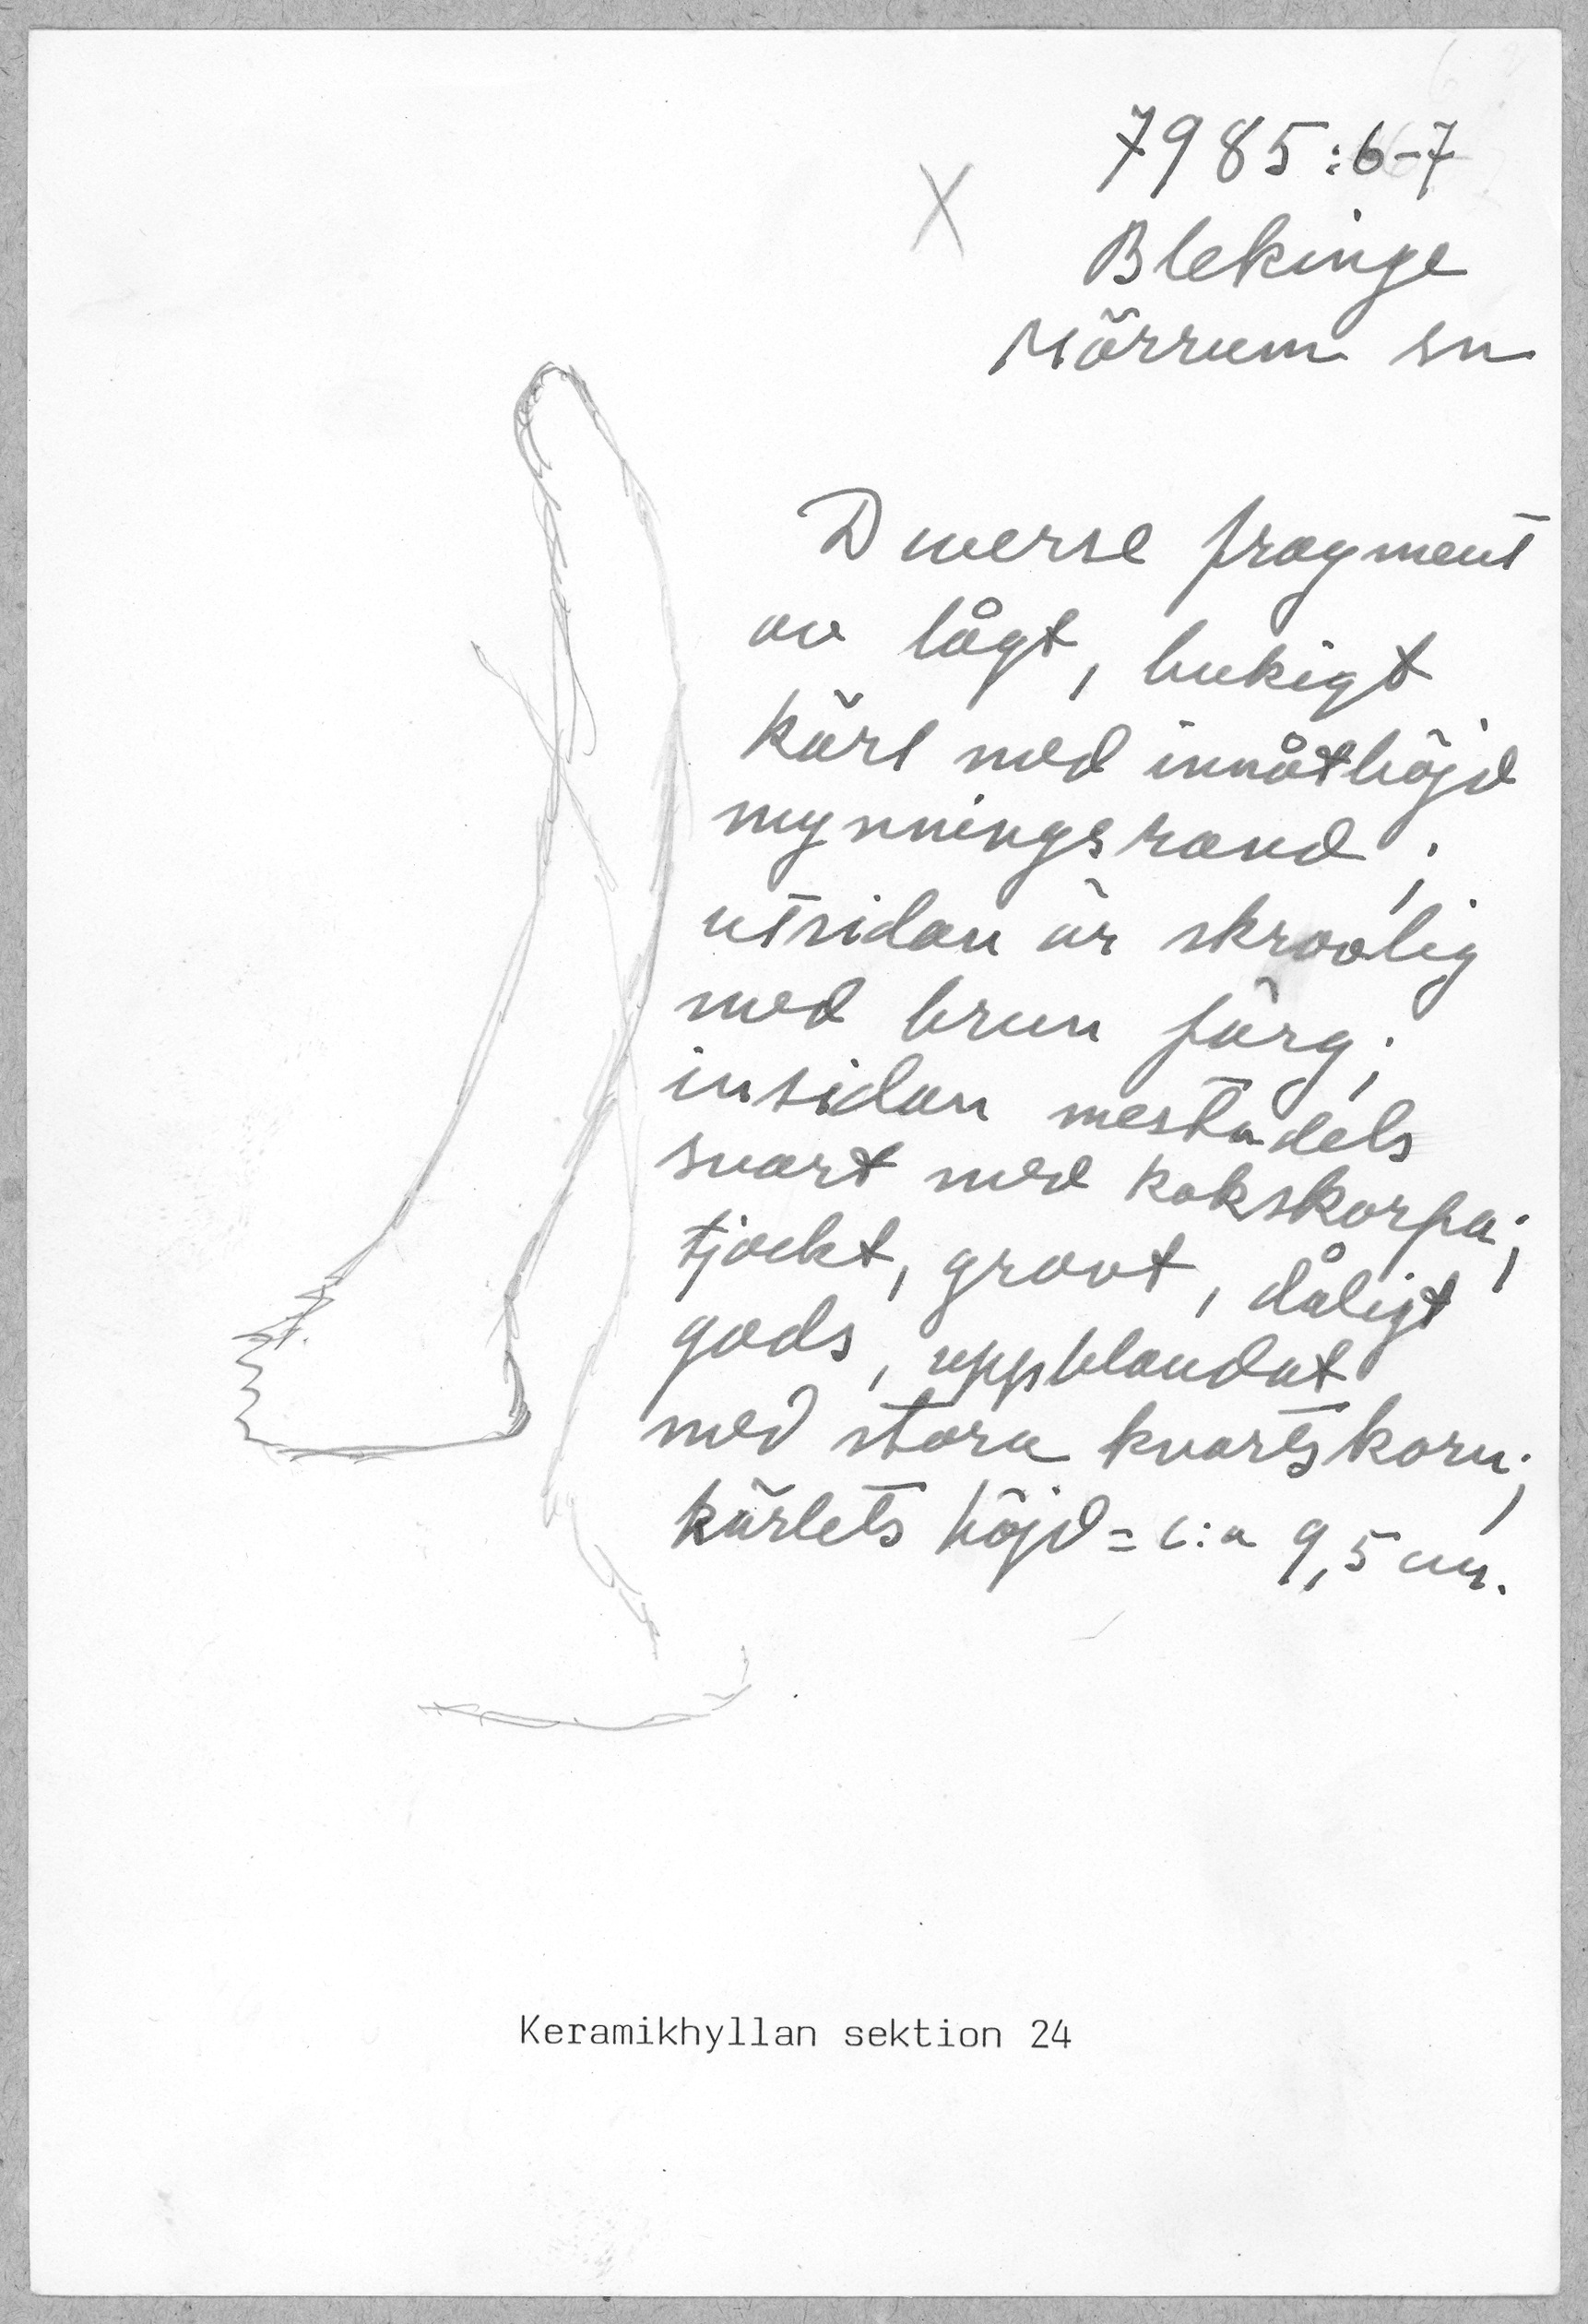 7985:6-7
X
Blekinge
Mörrum sn
Diverse fragment
av lågt, bukigt
kärl med inåtböjd
mynningsrand;
utsidan är skrovlig
med brun färg;
insidan mestadels
svart med kokskorpa;
tjockt, grovt, dåligt
gods, uppblandat
med stora kvartskorn;
kärlets höjd = c:a 9,5 cm.
Keramikhyllan sektion 24